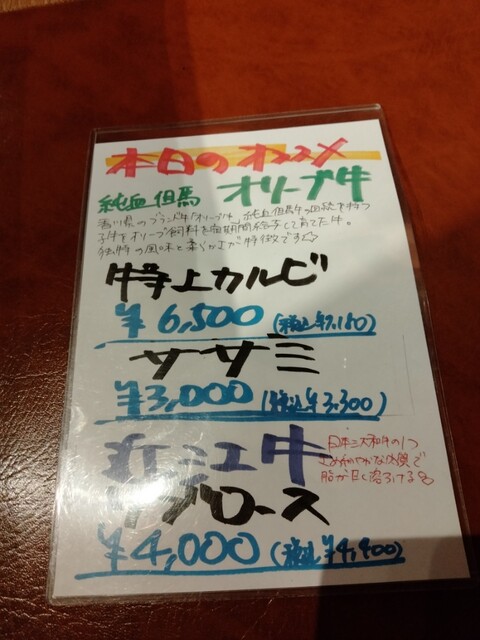 本日のオススメ
純血但馬 オリーブ牛
香川県のブランド牛「オリーブ牛」純血但馬牛の血統を持つ
子牛をオリーブ飼料を毎期間給予して育てた牛。
独特の風味と柔らかさが特徴です☆
特上カルビ
¥6,500(税込¥7,150)
ササミ
¥3,000(税込¥3,300)
近江牛
日本三大和牛の1つ
きめ細やかな肉質で
脂が甘く溶ける
リブロース
¥4,000(税込¥4,400)